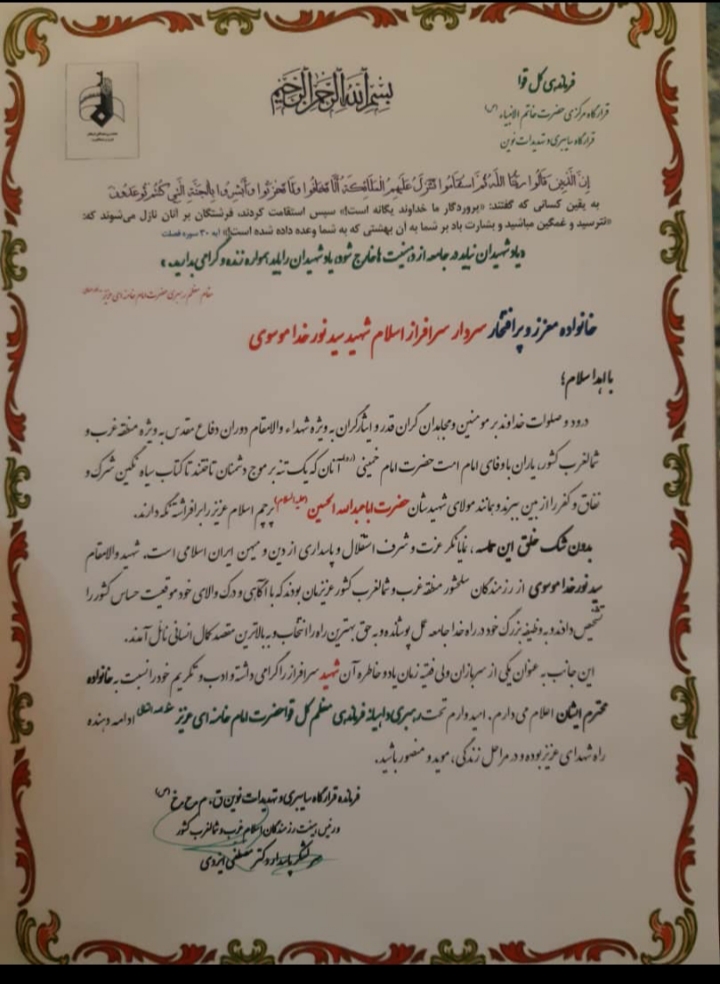 بسم الله الرحمن الرحیم
فرماندهی کل قوا
قرارگاه مرکزی حضرت خاتم الانبیاء (ص)
قرارگاه سایبری و تهدیدات نوین
إِنَّ الَّذِينَ قَالُوا رَبُّنَا اللَّهُ ثُمَّ اسْتَقَامُوا تَتَنَزَّلُ عَلَيْهِمُ الْمَلَائِكَةُ أَلَّا تَخَافُوا وَلَا تَحْزَنُوا وَأَبْشِرُوا بِالْجَنَّةِ الَّتِي كُنْتُمْ تُوعَدُونَ
به یقین کسانی که گفتند: «پروردگار ما خداوند یگانه است!» سپس استقامت کردند، فرشتگان بر آنان نازل می‌شوند که:
«نترسید و غمگین مباشید و بشارت باد بر شما به آن بهشتی که به شما وعده داده شده است!» ایه ۳۰ سوره فصلت
«یاد شهیدان نباید در جامعه از ذهنیت ها خارج شود؛ یاد شهیدان را باید همواره زنده و گرامی بدارید.»
مقام معظم رهبری حضرت امام خامنه ای عزیز
خانواده معزز و پر افتخار سردار سرافراز اسلام شهید سید نورخدا موسوی
با اهدا سلام؛
درود و صلوات خداوند بر مومنین و مجاهدان گران قدر و ایثارگران به ویژه شهداء والامقام دوران دفاع مقدس به ویژه منطقه غرب و
شمالغرب کشور، یاران باوفای امام امت حضرت امام خمینی (ره) آنان که یک تنه بر موج دشمنان تاختند تا کتاب سیاه ننگین شرک و
نفاق و کفر را از بین ببرند و بمانند مولای شهیدشان حضرت اباعبدالله الحسین (علیه السلام) پرچم اسلام عزیز را برافراشته نگه دارند.
بدون شک خلق این حماسه، نمایانگر عزت و شرف استقلال و پاسداری از دین و میهن ایران اسلامی است. شهید والامقام
سید نورخدا موسوی از رزمندگان سلحشور منطقه غرب و شمالغرب کشور عزیزمان بودند که با آگاهی و درک والای خود موقعیت حساس کشور را
تشخیص داده و به وظیفه بزرگ خود در راه خدا جامه عمل پوشانده و به حق بهترین راه را انتخاب و به بالاترین مقصد کمال انسانی نائل آمدند.
این جانب به عنوان یکی از سربازان ولی فقیه زمان یاد و خاطره آن شهید سرافراز را گرامی داشته و ادب و تکریم خود را نسبت به خانواده
محترم ایشان اعلام می دارم. امید دارم تحت رهبری داهیانه فرماندهی معظم کل قوا حضرت امام خامنه ای عزیز ادامه دهنده
راه شهدای عزیز بوده و در مراحل زندگی، موید و منصور باشید.
فرمانده قرارگاه سایبری و تهدیدات نوین ق. م ح خ (ص)
و رئیس هیئت رزمندگان اسلام غرب و شمالغرب کشور
سرلشکر پاسدار دکتر مصطفی ایزدی